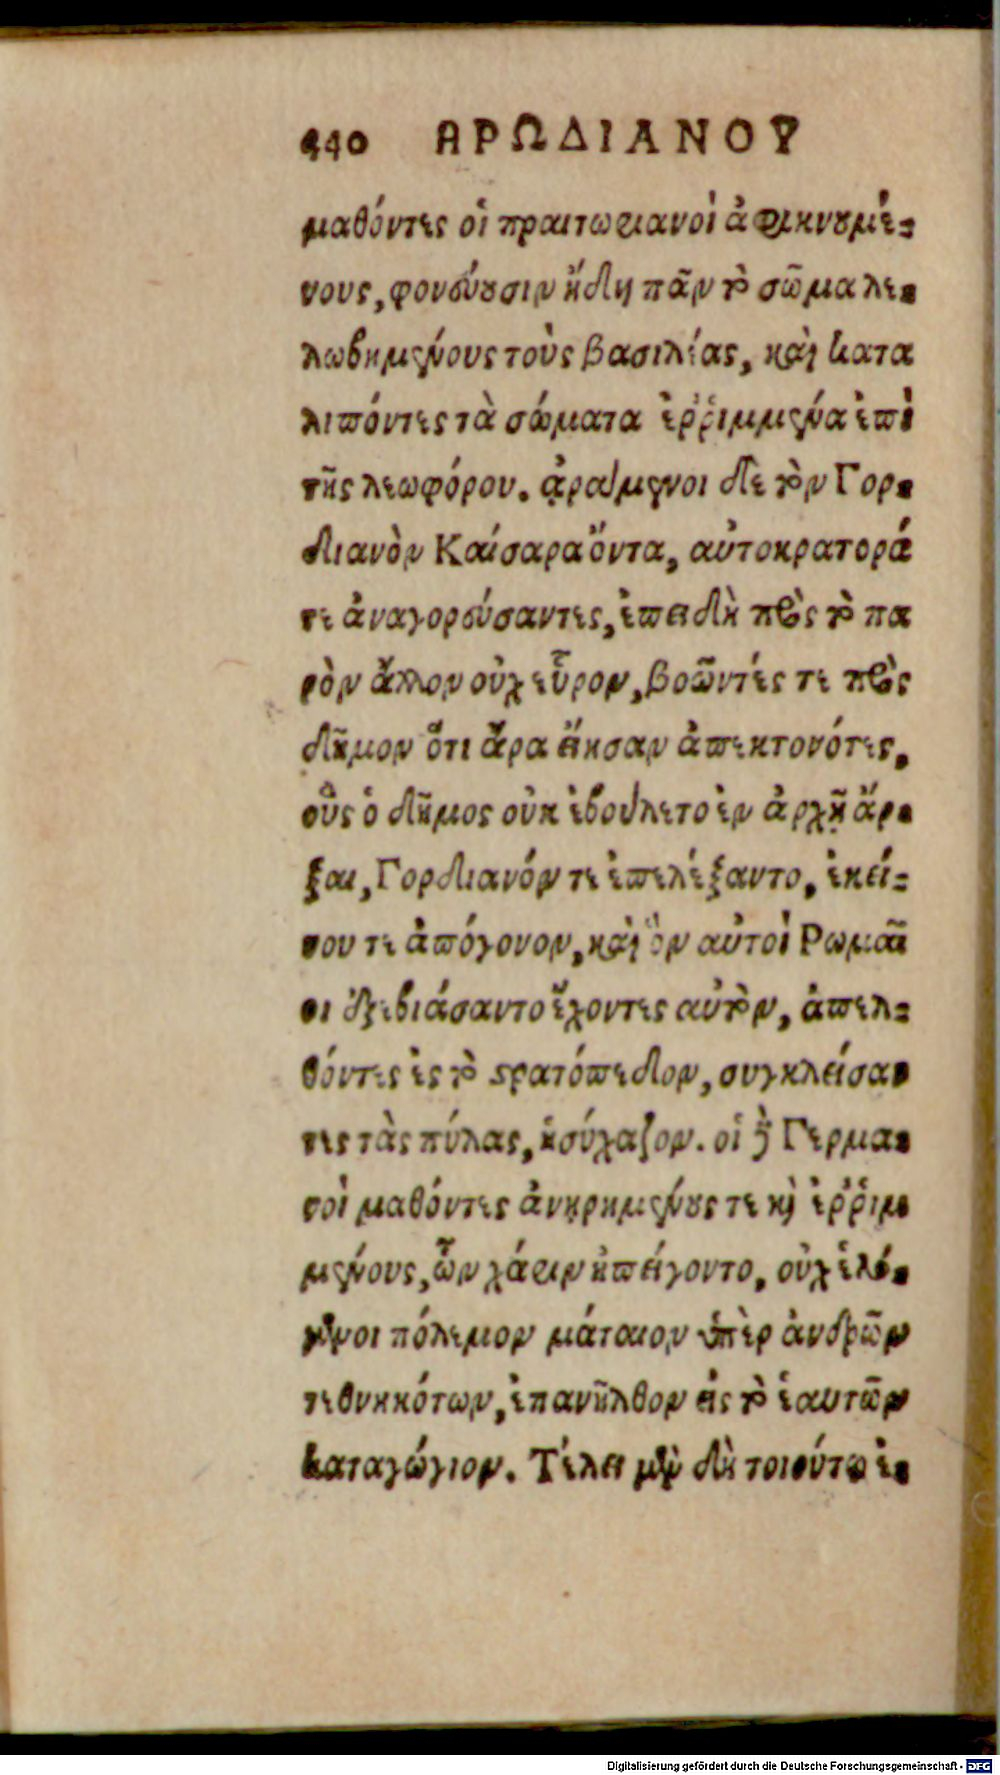 440 ΗΡΩΔΙΑΝΟΥ
μαθόντες οἱ πραιτωριανοὶ ἀφικνουμέ-
νους, φονεύουσιν ἤδη πᾶν τὸ σῶμα λε-
λωβημένους τοὺς βασιλέας, καὶ κατα
λιπόντες τὰ σώματα ἐῤῥιμμένα ἐπὶ
τῆς λεωφόρου. ἀράμενοι δὲ τὸν Γορ-
διανὸν Καίσαρα ὄντα, αὐτοκρατορά
τε ἀναγορεύσαντες, ἐπειδὴ πρὸς τὸ πα
ρὸν ἄλλον οὐχ εὗρον, βοῶντές τε πρὸς
δῆμον ὅτι ἄρα εἴησαν ἀπεκτονότες,
οὓς ὁ δῆμος οὐκ ἐβούλετο ἐν ἀρχῇ ἄρ-
ξαι, Γορδιανόν τε ἐπελέξαντο, ἐκεί-
νου τε ἀπόγονον, καὶ ὃν αὐτοὶ Ρωμαῖ
οι ἐξεβιάσαντο ἔχοντες αὐτὸν, ἀπελ-
θόντες ἐς τὸ στρατόπεδον, συγκλείσαν
τες τὰς πύλας, ἡσύχαζον. οἱ δὲ Γερμα-
νοὶ μαθόντες ἀνῃρημένους τε καὶ ἐῤῥιμ
μένους, ὧν χάριν ἠπείγοντο, οὐχ ἑλό-
μενοι πόλεμον μάταιον ὑπὲρ ἀνδρῶν
τεθνηκότων, ἐπανῆλθον εἰς τὸ ἑαυτῶν
καταγώγιον. Τέλει μὲν δὴ τοιούτῳ ἐ-
Digitalisierung gefördert durch die Deutsche Forschungsgemeinschaft - DFG